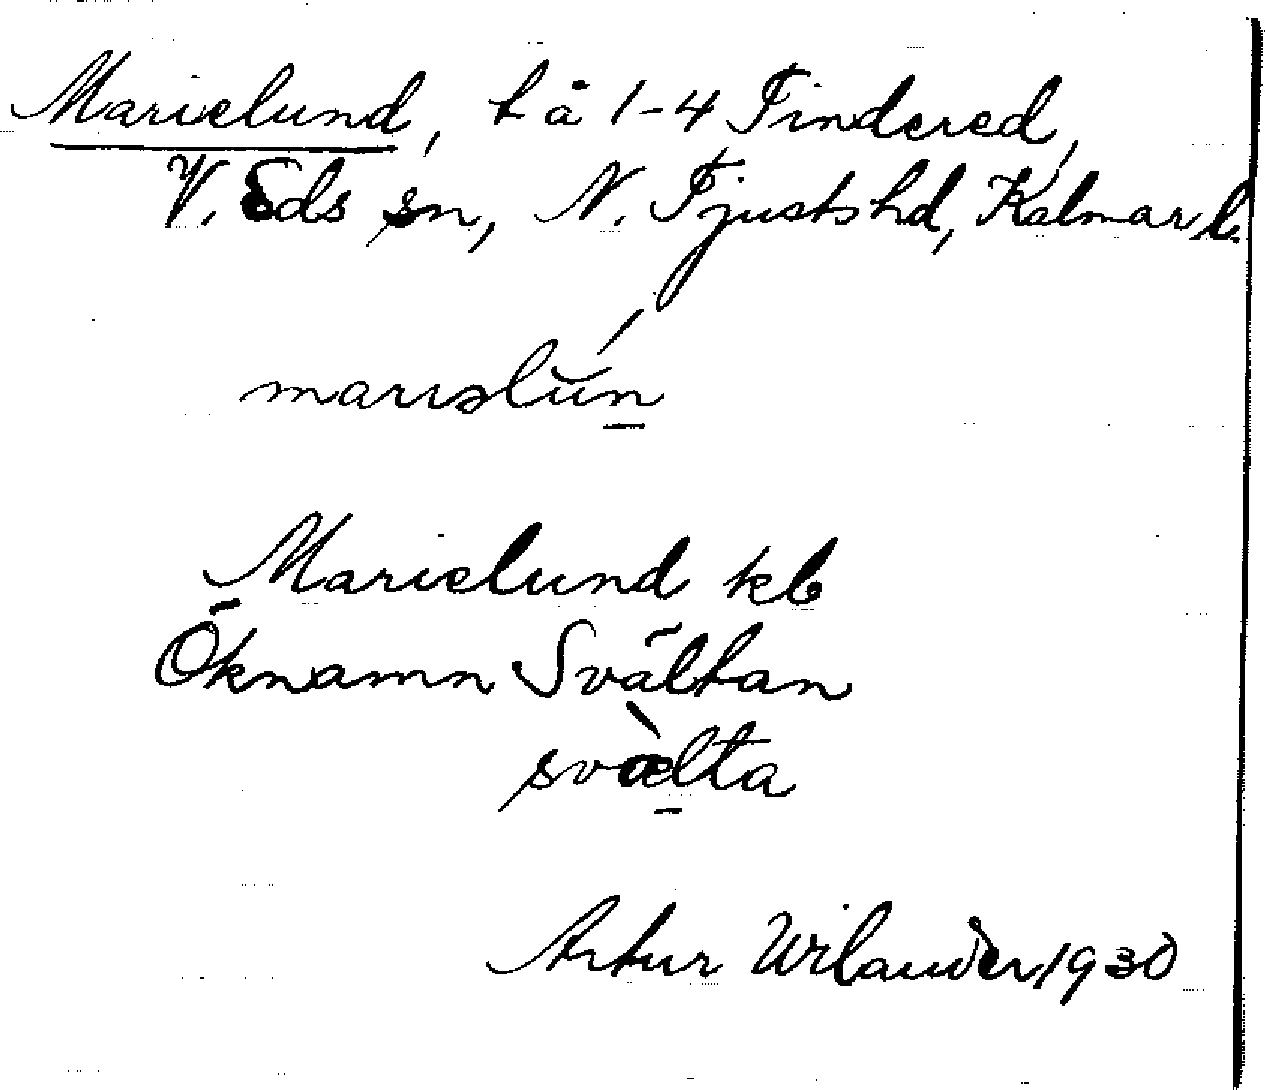 Marielund, t å 1-4 Tindered,
V. Eds sn, N. Tjusts hd, Kalmar l.
marıəlún
Marielund kb
Öknamn Svältan
svæ̀lta
Artur Wilander 1930